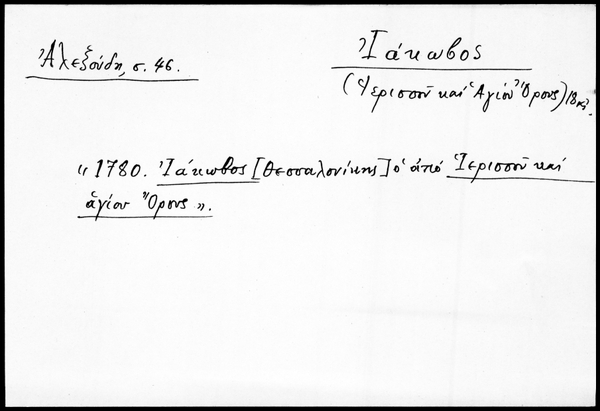 Ἀλεξούδη, σ. 46.
Ἰάκωβος
(Ἱερισσοῦ καὶ Ἁγίου Ὄρους) 18ος.
« 1780. Ἰάκωβος [Θεσσαλονίκης] ὁ ἀπό Ἱερισσοῦ καὶ
ἁγίου Ὄρους ».